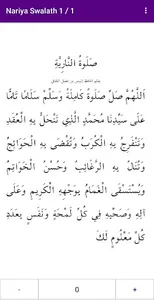 Nariya Swalath 1 / 1
صَلَوةُ النَّارِيَّةِ
اَللّٰهُمَّ صَلِّ صَلَوةً كَامِلَةً وَسَلِّمْ سَلَامًا تَامًّا
عَلَى سَيِّدِنَا مُحَمَّدٍ الَّذِي تَنْحَلُّ بِهِ الْعُقَدِ
وَتَنْفَرِجُ بِهِ الْكُرَبُ وَتُقْضَى بِهِ الْحَوَائِجُ
وَتُنَالُ بِهِ الرَّغَائِبُ وَحُسْنُ الْخَوَاتِمِ
وَيُسْتَسْقَى الْغَمَامُ بِوَجْهِهِ الْكَرِيمِ وَعَلَى
آلِهِ وَصَحْبِهِ فِي كُلِّ لَمْحَةٍ وَنَفَسٍ بِعَدَدِ
كُلِّ مَعْلُومٍ لَكَ
- 0 +